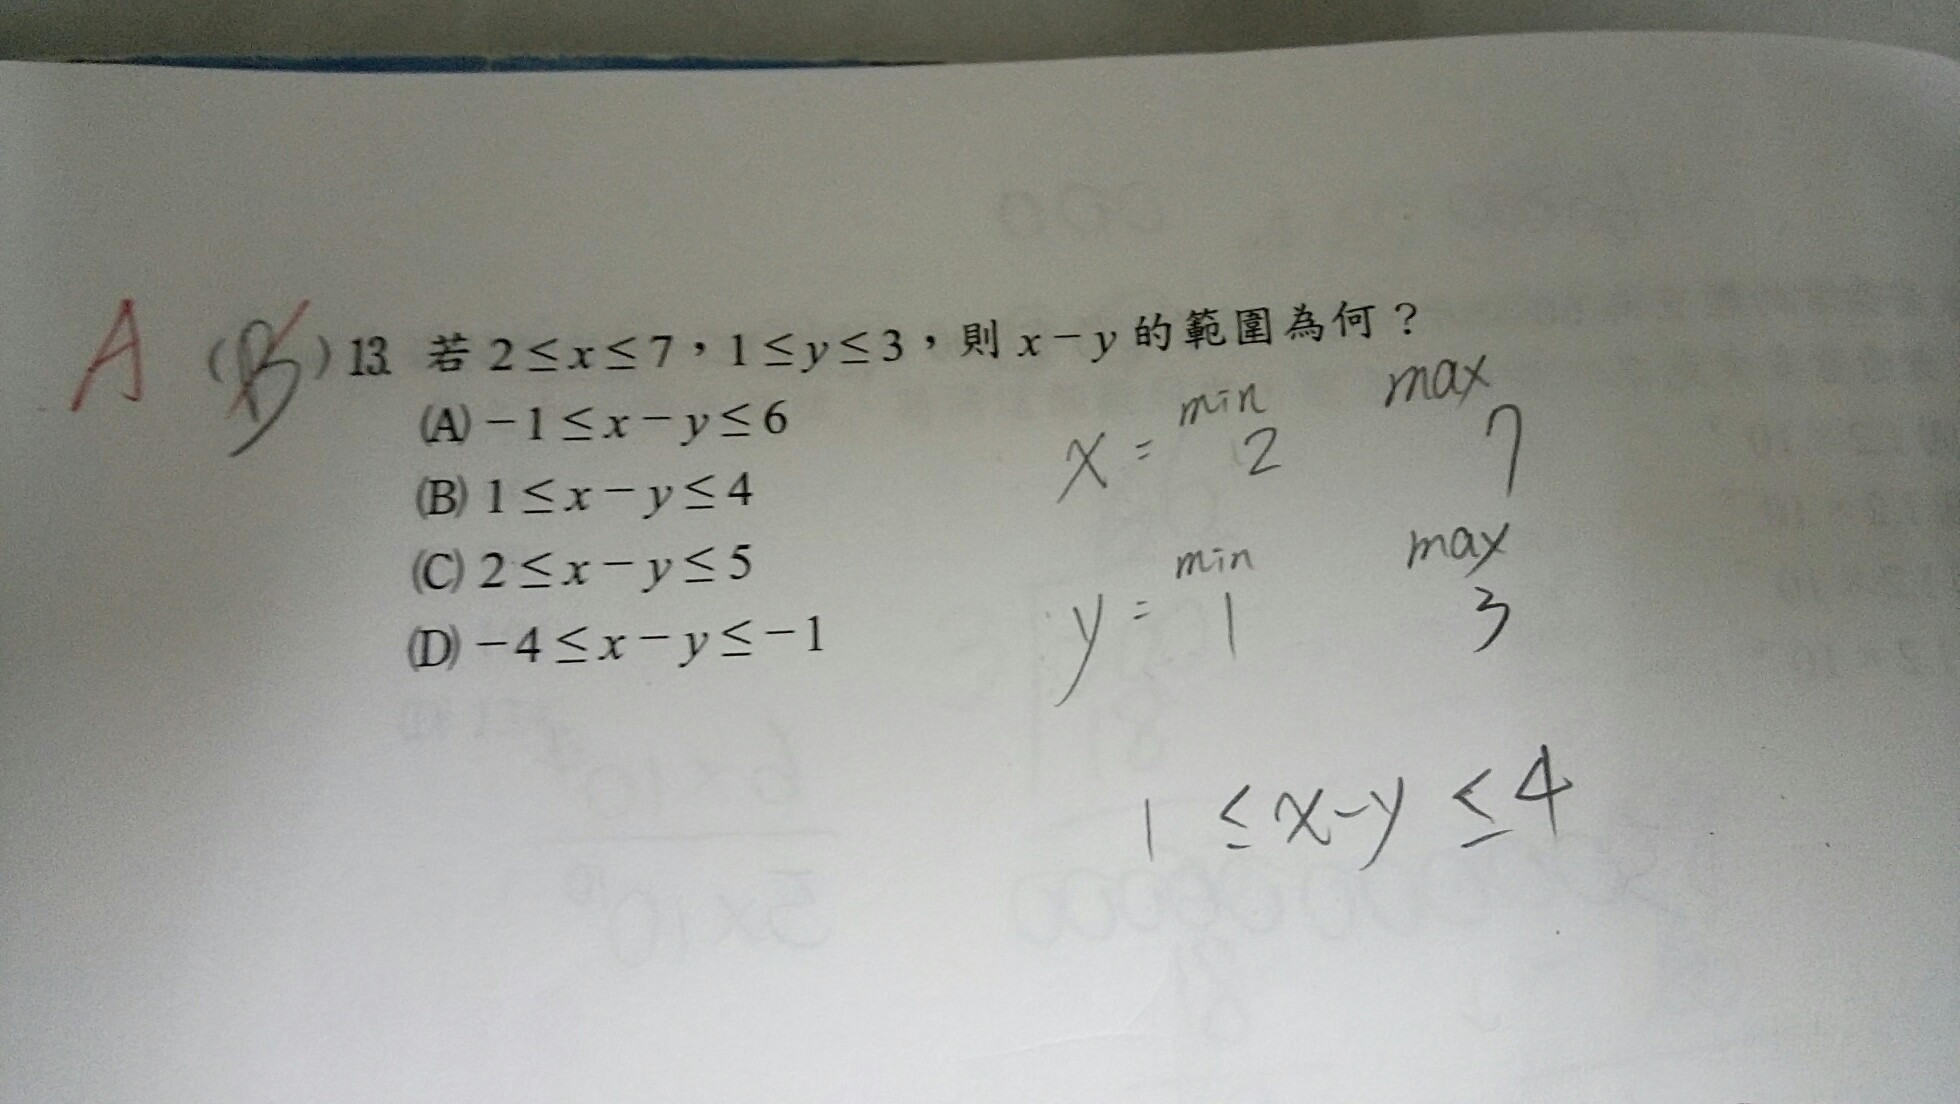 A (B) 13. 若 2≤x≤7，1≤y≤3，則 x－y 的範圍為何？
(A) －1≤x－y≤6
(B) 1≤x－y≤4
(C) 2≤x－y≤5
(D) －4≤x－y≤－1
min max
x = 2 7
min max
y = 1 3
1 ≤ x-y ≤ 4